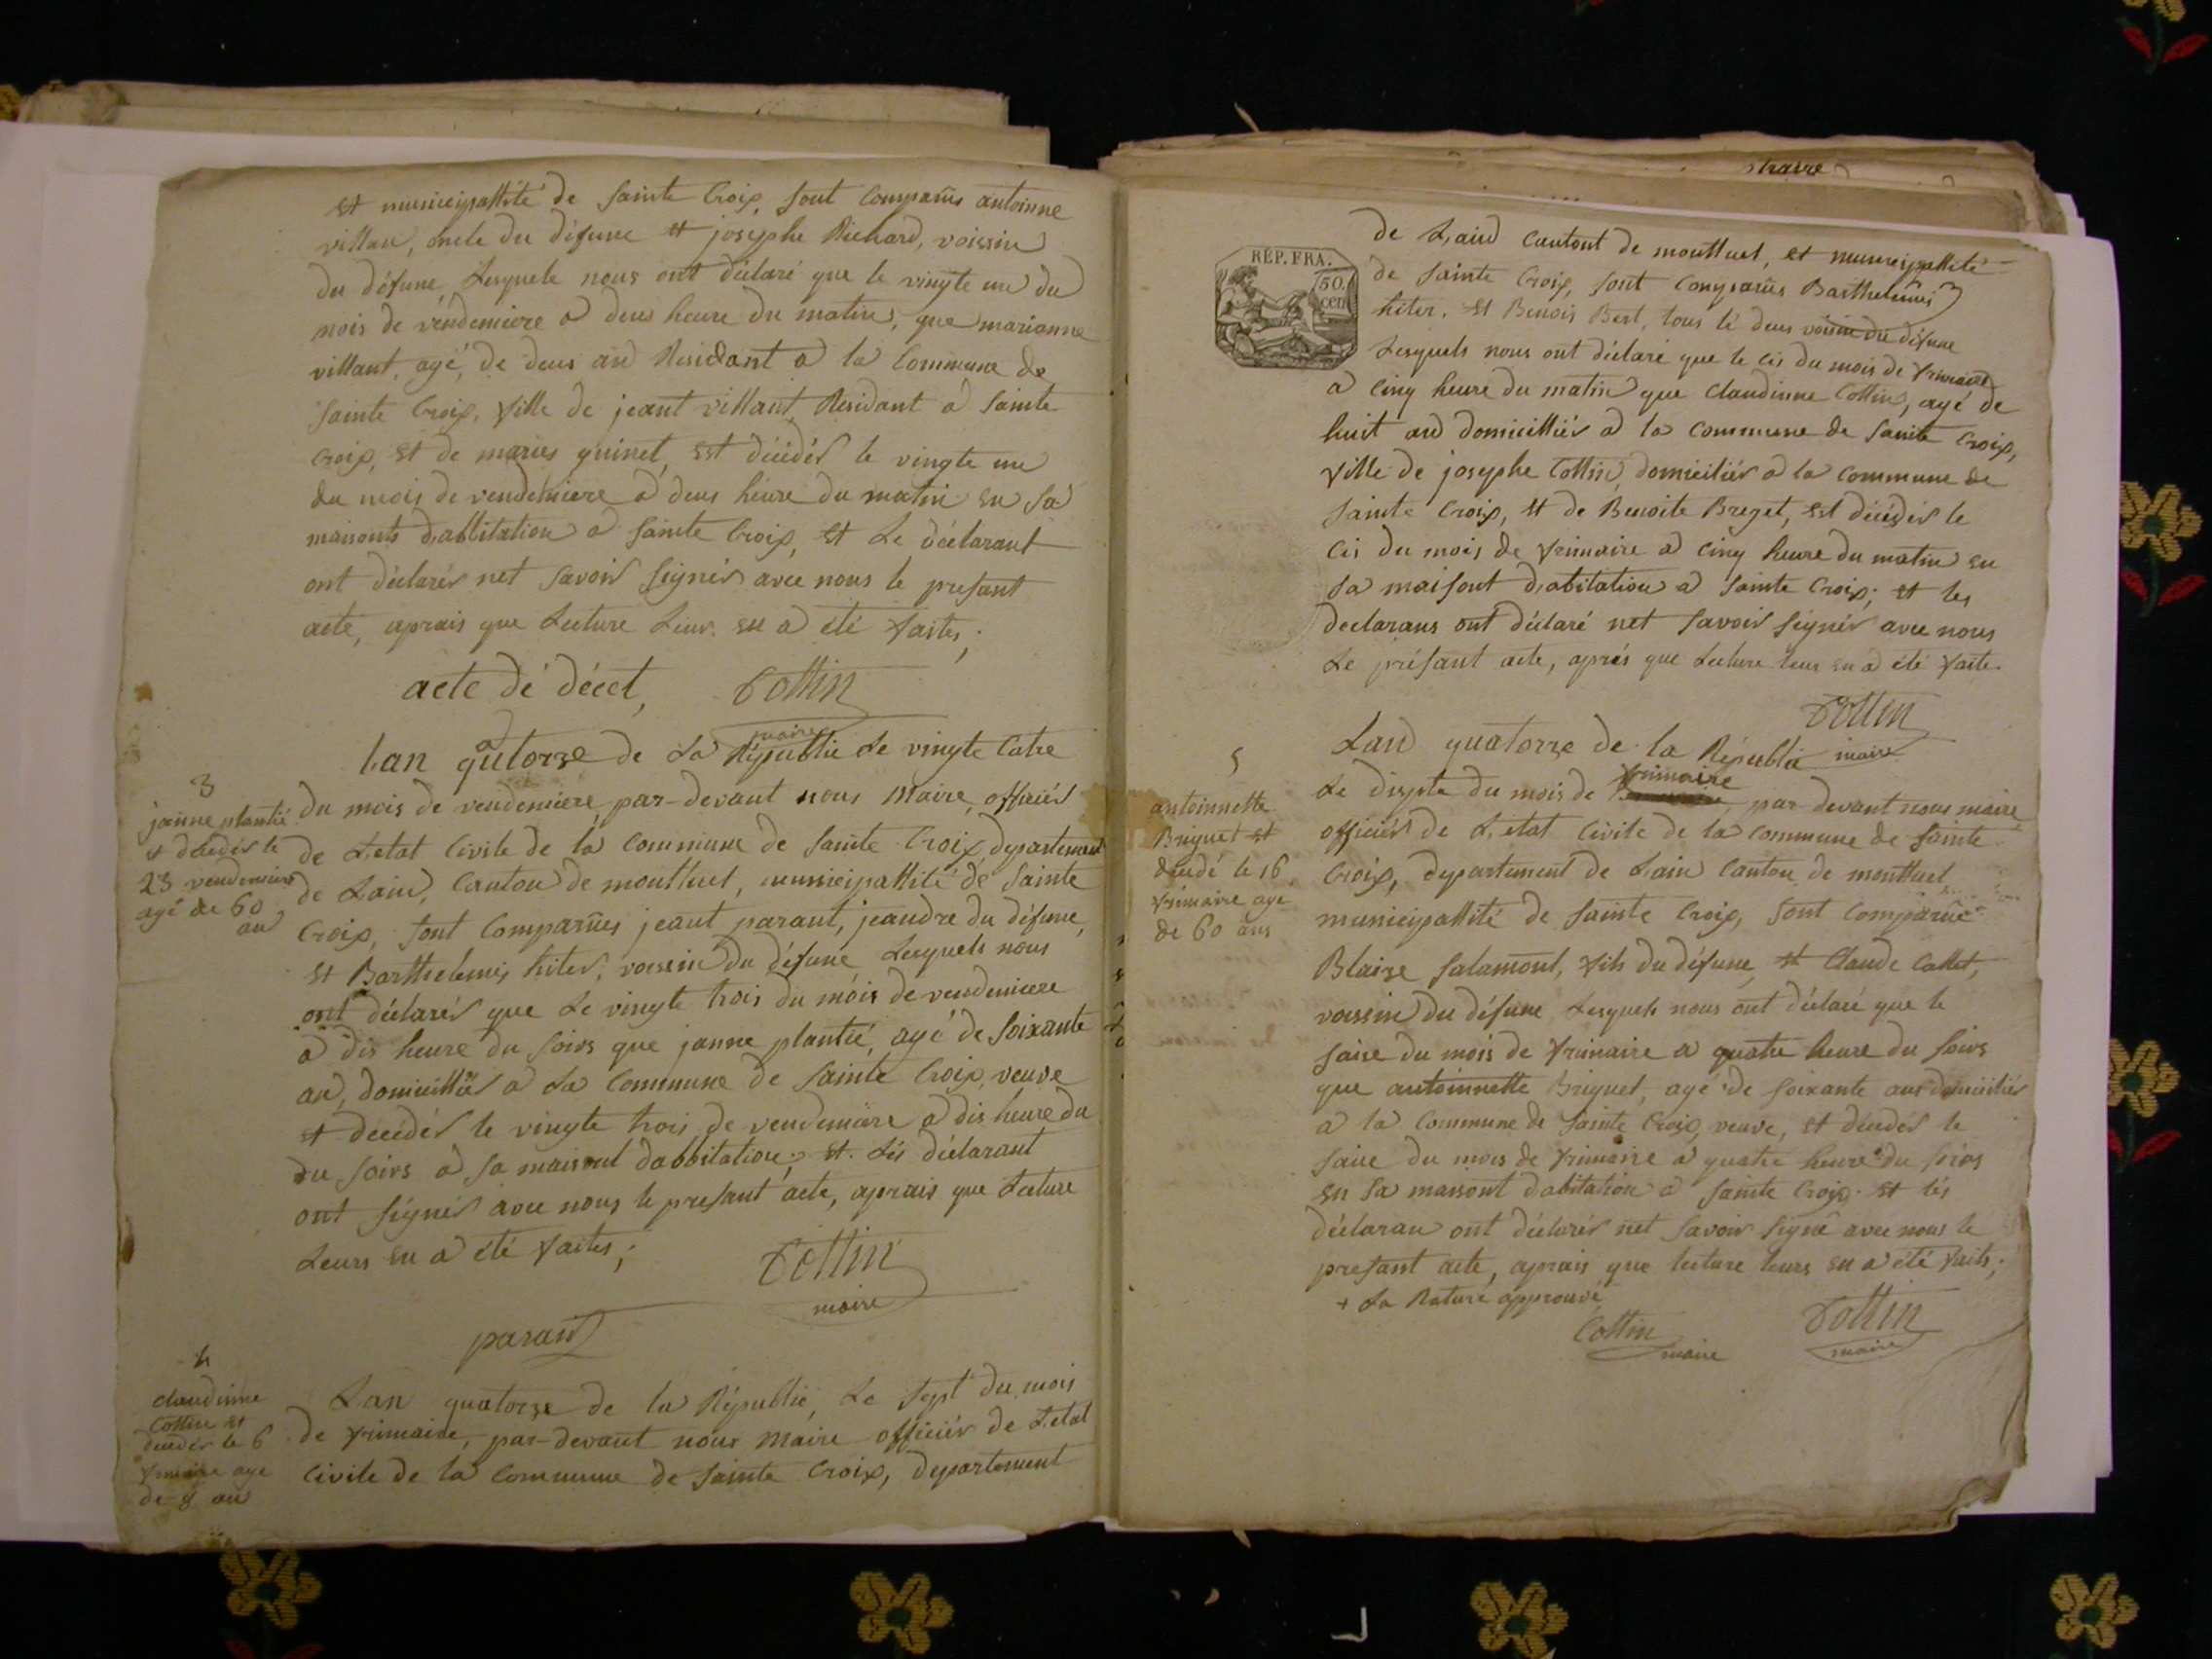 et municipallité de Sainte Croix, sont comparus antoinne
villau, oncle du défune et josephe Richard, voissin
du défune, Lesquels nous ont déclaré que le vingte un du
mois de vendemiere a deus heure du matin, que marianne
villant, agé, de deus an Residant a la Commune de
Sainte Croix, fille de jeant villant, Residant a Sainte
Croix, et de maries guinet, est décédés le vingte un
du mois de vendemiere a deus heure du matin en sa
maisonts d'abbitation a Sainte Croix, et Le déclarant
ont déclarés net savoir signés avec nous le presant
acte, aprais que Lecture Leur en a été faites;
acte de décet, Cottin
maire
Lan quatorze de La Républic Le vingte Catre
3
janne plantié
et décédés le
23 vendemiere
agé de 60
an
du mois de vendemiere, par-devant nous Maire, officiés
de L'etat Civile de la Commune de Sainte Croix departement
de Lain, Canton de montluel, municipallité de Sainte
Croix, sont Comparues jeant parant, jeandre du défune,
et Barthelemis hiter, voissin du défune Lesquels nous
ont déclarés que Le vingte trois du mois de vendemiere
a dis heure du soirs que janne plantié, agé de soixante
an, domicilliés a La Commune de Sainte Croix, veuve
et décédés le vingte trois de vendemiere a dis heure du
du soirs a sa maisont dabbitation, et Lés déclarant
ont signés avec nous le presant acte, aprais que Lecture
Leurs en a été faites;
Cottin
maire
parant
4
claudinne
Cottin et
décédés le 6
frimaire age
de 8 an
Lan quatorze de la Républic, Le sept du mois
de frimaire, par-devant nous Maire officiés de L'etat
Civile de la Commune de Sainte Croix, departement
RÉP. FRA.
50.
cen
de Lain Cantont de montluel, et municipallité
de Sainte Croix, sont comparus Barthelemis
hiter, et Benois Bert, tous lé deus voisin du défune
Lesquels nous ont déclaré que le cis du mois de frimaire
a cinq heure du matin que claudinne Cottin, agé de
huit an domicilliés a la commune de Sainte Croix,
fille de josephe Cottin, domiciliés a la commune de
Sainte Croix, et de Benoite Breget, est décédés le
cis du mois de frimaire a cinq heure du matin en
sa maisont d'abitation a Sainte Croix; et les
declarans ont déclaré net savoir signés avec nous
Le présant acte, aprés que Lecture leur en a été faite.
Cottin
maire
Lan quatorze de la Républic
5
antoinnette
Briguet et
décédé le 16
frimaire age
de 60 ans
frimaire
Le disepte du mois de par-devant nous maire
officiés de L'etat Civile de la commune de Sainte
Croix, departement de Lain Canton de montluel
municipallité de Sainte Croix, sont comparue
Blaize Salamont, fils du défune, et Claude Callet,
voissin du défune Lesquels nous ont déclaré que le
saise du mois de frimaire a quatre heure du soirs
que antoinnette Briguet, agé de soixante ans domiciliés
a la Commune de Sainte Croix, veuve, et décédés le
saise du mois de frimaire a quatre heure du soirs
en sa maisont d'abitation a Sainte Croix et lés
déclaran ont déclarés net savoir signé avec nous le
presant acte, aprais que lecture leurs en a été faits;
+ La Rature approuvé
Cottin maire
Cottin
maire